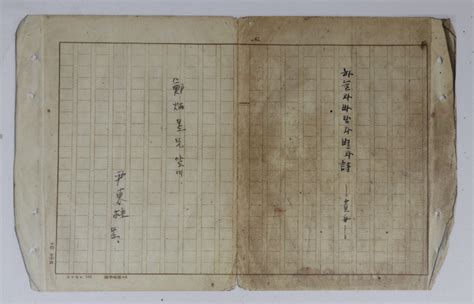 하늘과 바람과 별과 詩
鄭炳昱兄 앞에
尹東柱 呈.